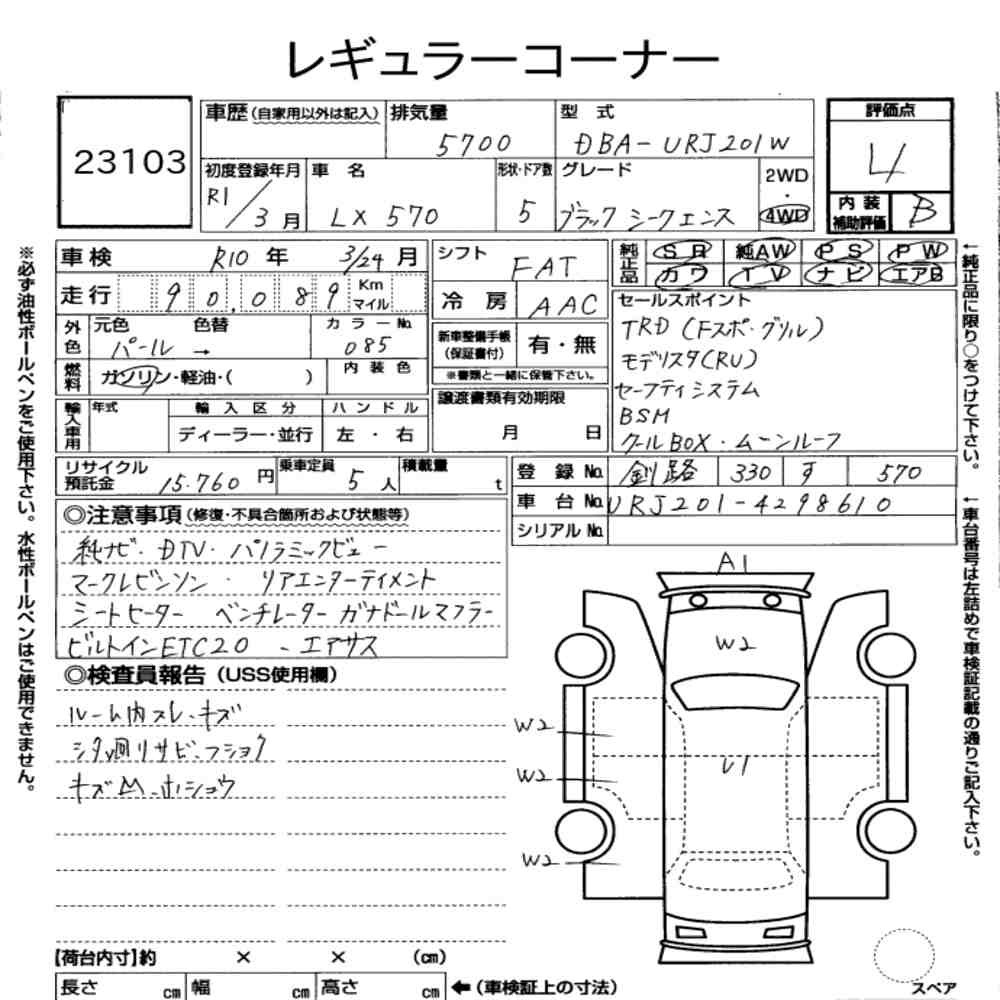 レギュラーコーナー
23103
車歴(自家用以外は記入)
排気量 5700
型式 DBA-URJ201W
評価点 4
初度登録年月 R1/3月
車名 LX 570
形状・ドア数 5
グレード ブラックシークエンス
2WD・4WD
内装補助評価 B
車検 R10年 3/24月
シフト FAT
純正品 SR 純AW PS PW
カワ TV ナビ エアB
走行 90,089 Km マイル
冷房 AAC
外色 元色 パール → 色替
カラーNo. 085
燃料 ガソリン・軽油・( )
内装色
新車整備手帳(保証書付) 有・無
※書類と一緒に保管下さい。
セールスポイント
TRD (Fスポ・グリル)
モデリスタ(RU)
セーフティシステム
BSM
クールBOX・ムーンルーフ
輸入車用 年式
輸入区分 ディーラー・並行
ハンドル 左・右
譲渡書類有効期限 月 日
リサイクル預託金 15.760円
乗車定員 5人
積載量 t
登録No. 釧路 330 す 570
車台No. URJ201-4298610
シリアルNo.
◎注意事項(修復・不具合箇所および状態等)
純ナビ・DTV・パノラミックビュー
マークレビンソン・リアエンターテイメント
シートヒーター ベンチレーター ガナドールマフラー
ビルトインETC2.0 、エアサス
◎検査員報告(USS使用欄)
ルーム内スレ、キズ
シタ廻リサビ、フショク
キズ凹、ホショウ
A1
W2
U1
W2
W2
W2
スペア
【荷台内寸】約 × × (cm)
長さ cm 幅 cm 高さ cm ←(車検証上の寸法)
※必ず油性ボールペンをご使用下さい。水性ボールペンはご使用できません。
←純正品に限り○をつけて下さい。
←車台番号は左詰めで車検証記載の通りご記入下さい。